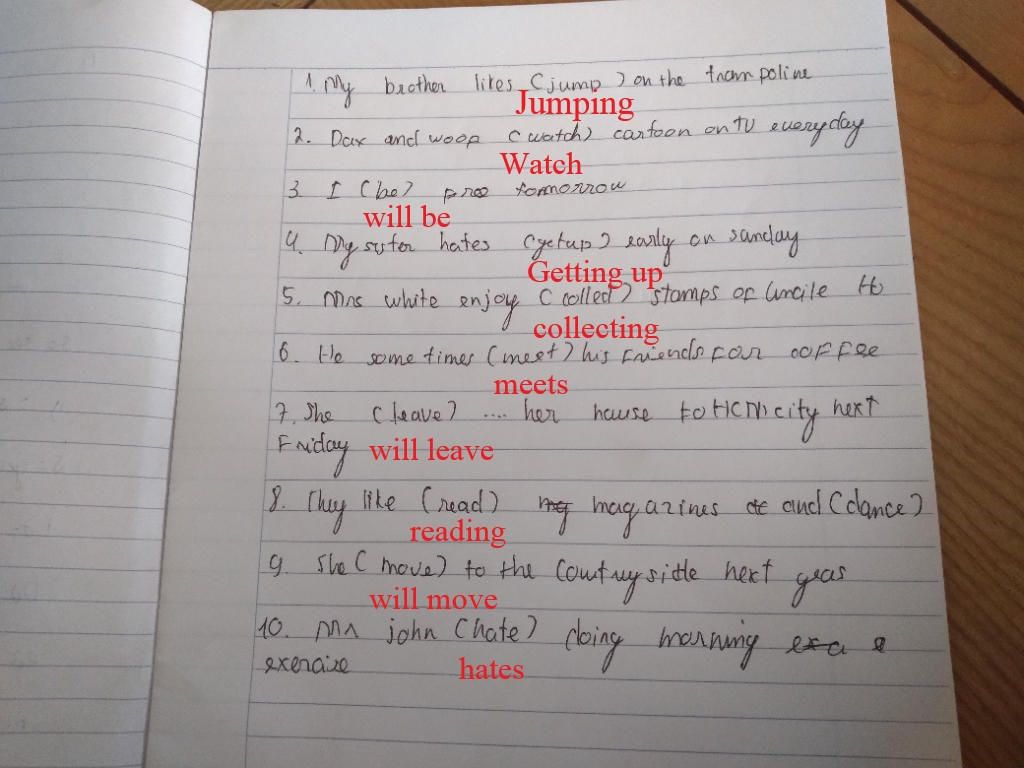 1. My brother likes (jump) on the trampoline
Jumping
2. Dax and woop (watch) cartoon on TV everyday
Watch
3. I (be) free tomorrow
will be
4. My sister hates (getup) early on sanday
Getting up
5. Mrs white enjoy (collect) stamps of Uncile Ho
collecting
6. He some times (meet) his friends For coffee
meets
7. She (leave) .... her hause to HCM city next
Friday will leave
8. They like (read) magazines and (dance)
reading
9. She (move) to the countryside next
will move
10. Mr john (hate) doing morning
exercise hates